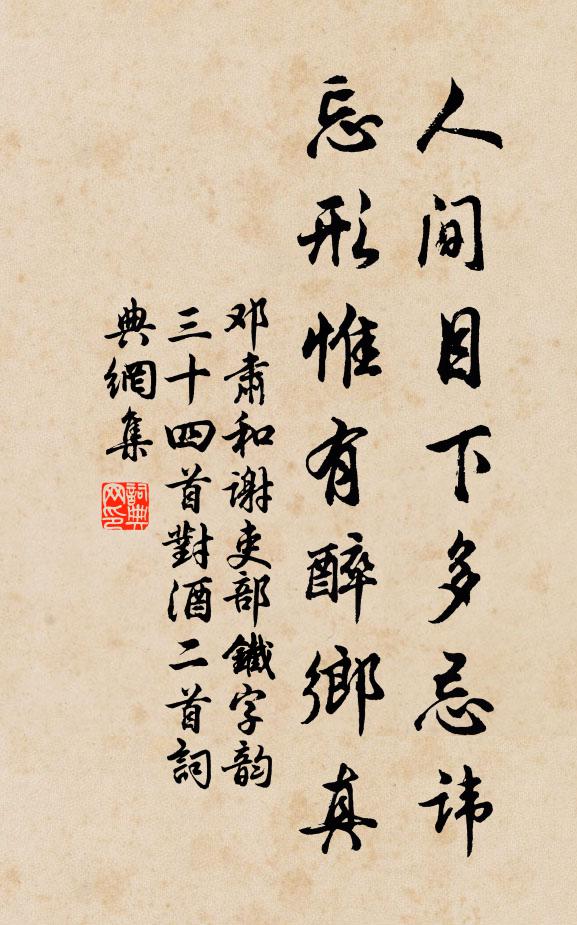 人间目下多忌讳
忘形惟有醉鄉真
邓肅和谢吏部鐵字韵
三十四首對酒二首詞
典網集
詞典网印